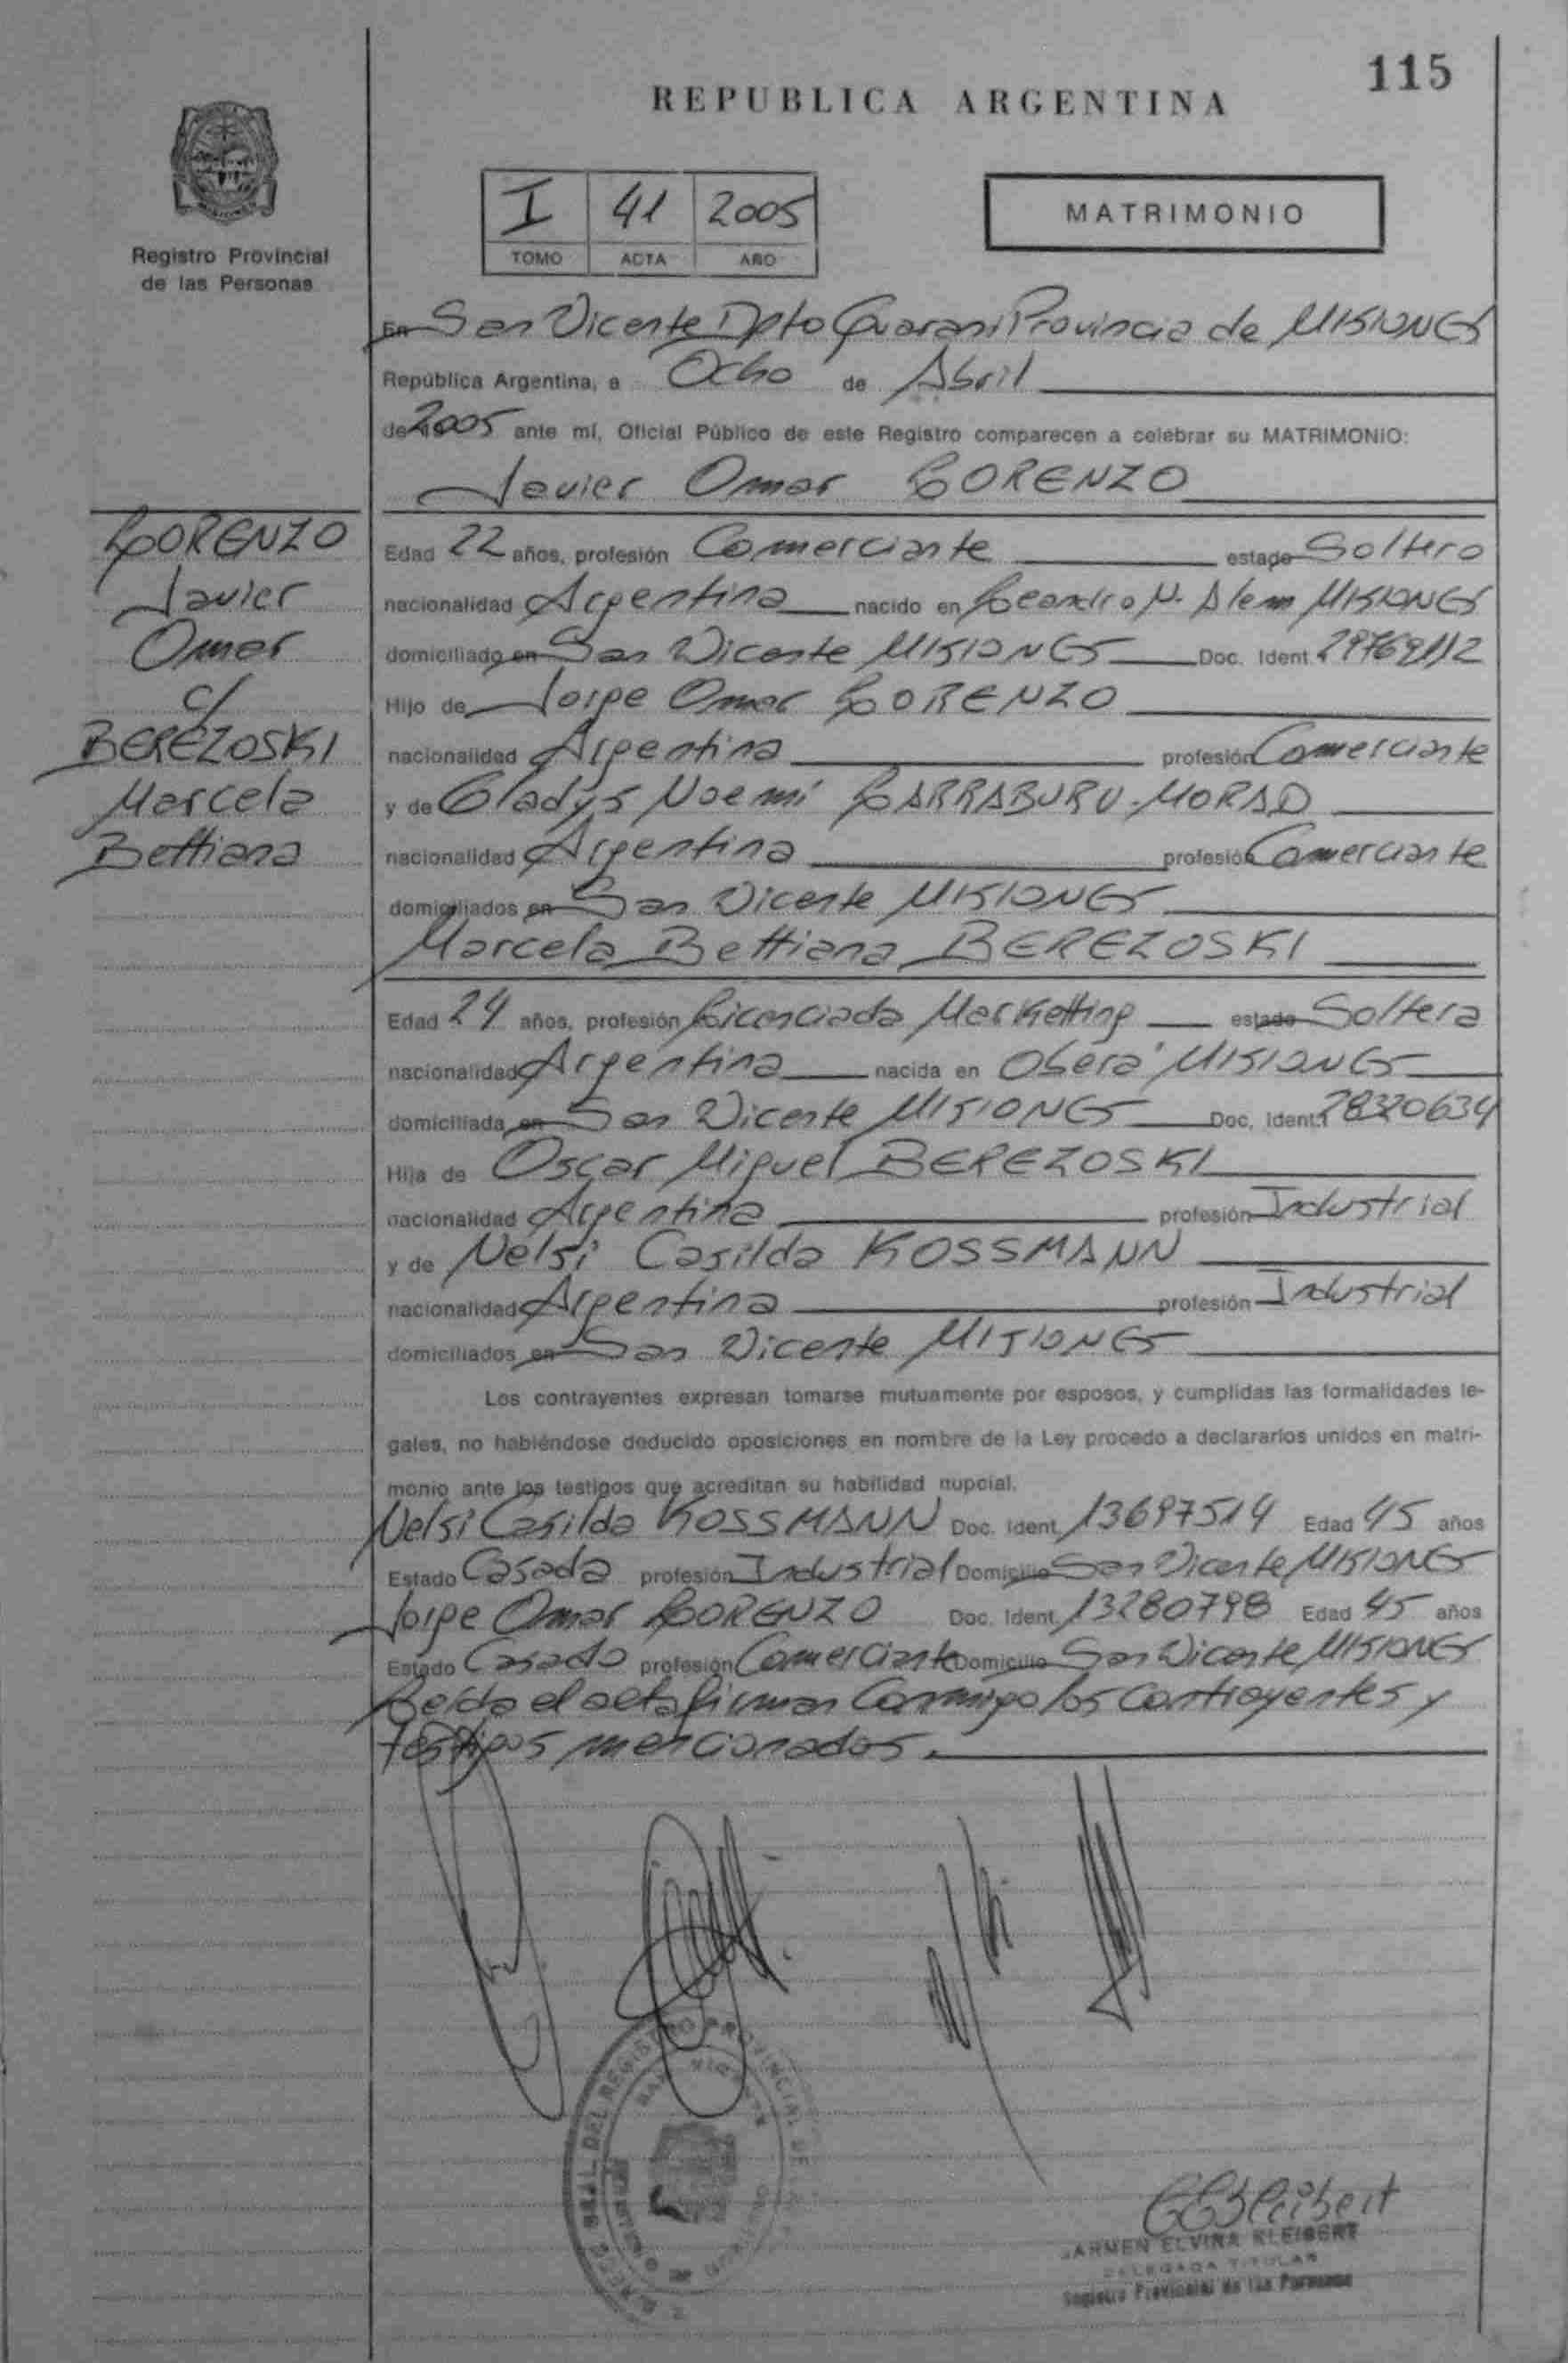 115
REPUBLICA ARGENTINA
I 41 2005
TOMO ACTA AÑO
MATRIMONIO
Registro Provincial
de las Personas
LORENZO
Javier
Omar
c/
BEREZOSKI
Marcela
Bettiana
En San Vicente Dpto Guarani Provincia de MISIONES
República Argentina, a Ocho de Abril
de 2005 ante mí, Oficial Público de este Registro comparecen a celebrar su MATRIMONIO:
Javier Omar LORENZO
Edad 22 años, profesión Comerciante estado Soltero
nacionalidad Argentina nacido en Leandro N. Alem MISIONES
domiciliado en San Vicente MISIONES Doc. Ident. 29769112
Hijo de Jorge Omar LORENZO
nacionalidad Argentina profesión Comerciante
y de Gladys Noemí LARRABURU-MORAD
nacionalidad Argentina profesión Comerciante
domiciliados en San Vicente MISIONES
Marcela Bettiana BEREZOSKI
Edad 24 años, profesión Licenciada Marketting estado Soltera
nacionalidad Argentina nacida en Oberá MISIONES
domiciliada en San Vicente MISIONES Doc. Ident. 28320634
Hija de Oscar Miguel BEREZOSKI
nacionalidad Argentina profesión Industrial
y de Nelsi Casilda KOSSMANN
nacionalidad Argentina profesión Industrial
domiciliados en San Vicente MISIONES
Los contrayentes expresan tomarse mutuamente por esposos, y cumplidas las formalidades le-
gales, no habiéndose deducido oposiciones en nombre de la Ley procedo a declararlos unidos en matri-
monio ante los testigos que acreditan su habilidad nupcial.
Nelsi Casilda KOSSMANN Doc. Ident. 13697514 Edad 45 años
Estado Casada profesión Industrial Domicilio San Vicente MISIONES
Jorge Omar LORENZO Doc. Ident. 13280798 Edad 45 años
Estado Casado profesión Comerciante Domicilio San Vicente MISIONES
Leida el acta firman Conmigo los Contrayentes y
testigos mencionados.
GRAL DEL REGISTRO PROVINCIAL DE
SAN VICENTE
CEKleibert
CARMEN ELVIRA KLEIBERT
DELEGADA TITULAR
Registro Provincial de las Personas